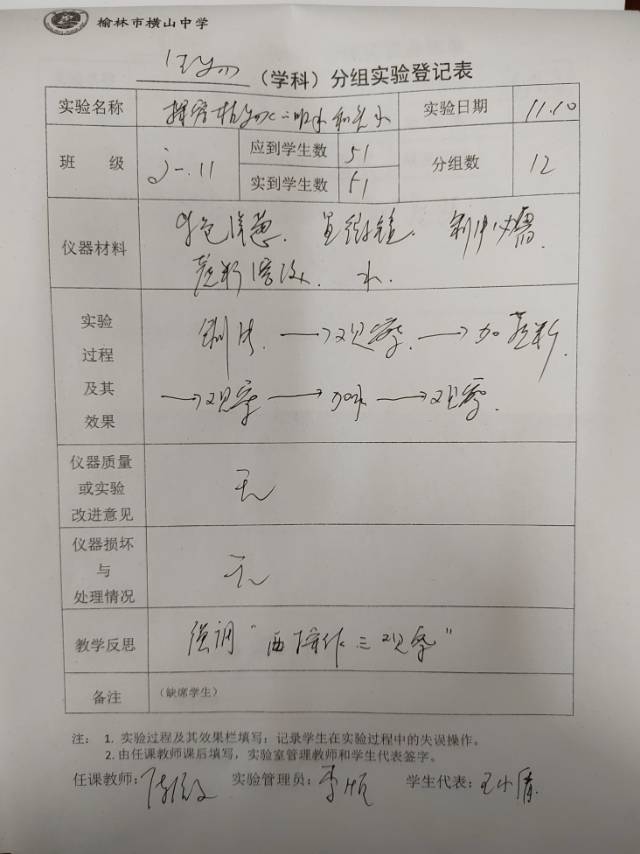 榆林市横山中学
生物（学科）分组实验登记表
实验名称 探究植物细胞的吸水和失水 实验日期 11.10
班 级 高一.11 应到学生数 51 分组数 12
实到学生数 51
仪器材料 紫色洋葱. 显微镜. 制片必需.
蔗糖溶液. 水.
实验
过程
及其
效果
制片. →观察. →加蔗糖.
→观察→加水→观察.
仪器质量
或实验
改进意见
无
仪器损坏
与
处理情况
无
教学反思 强调“两操作三观察”
备注 （缺席学生）
注： 1. 实验过程及其效果栏填写：记录学生在实验过程中的失误操作。
2. 由任课教师课后填写，实验室管理教师和学生代表签字。
任课教师： 实验管理员： 学生代表：